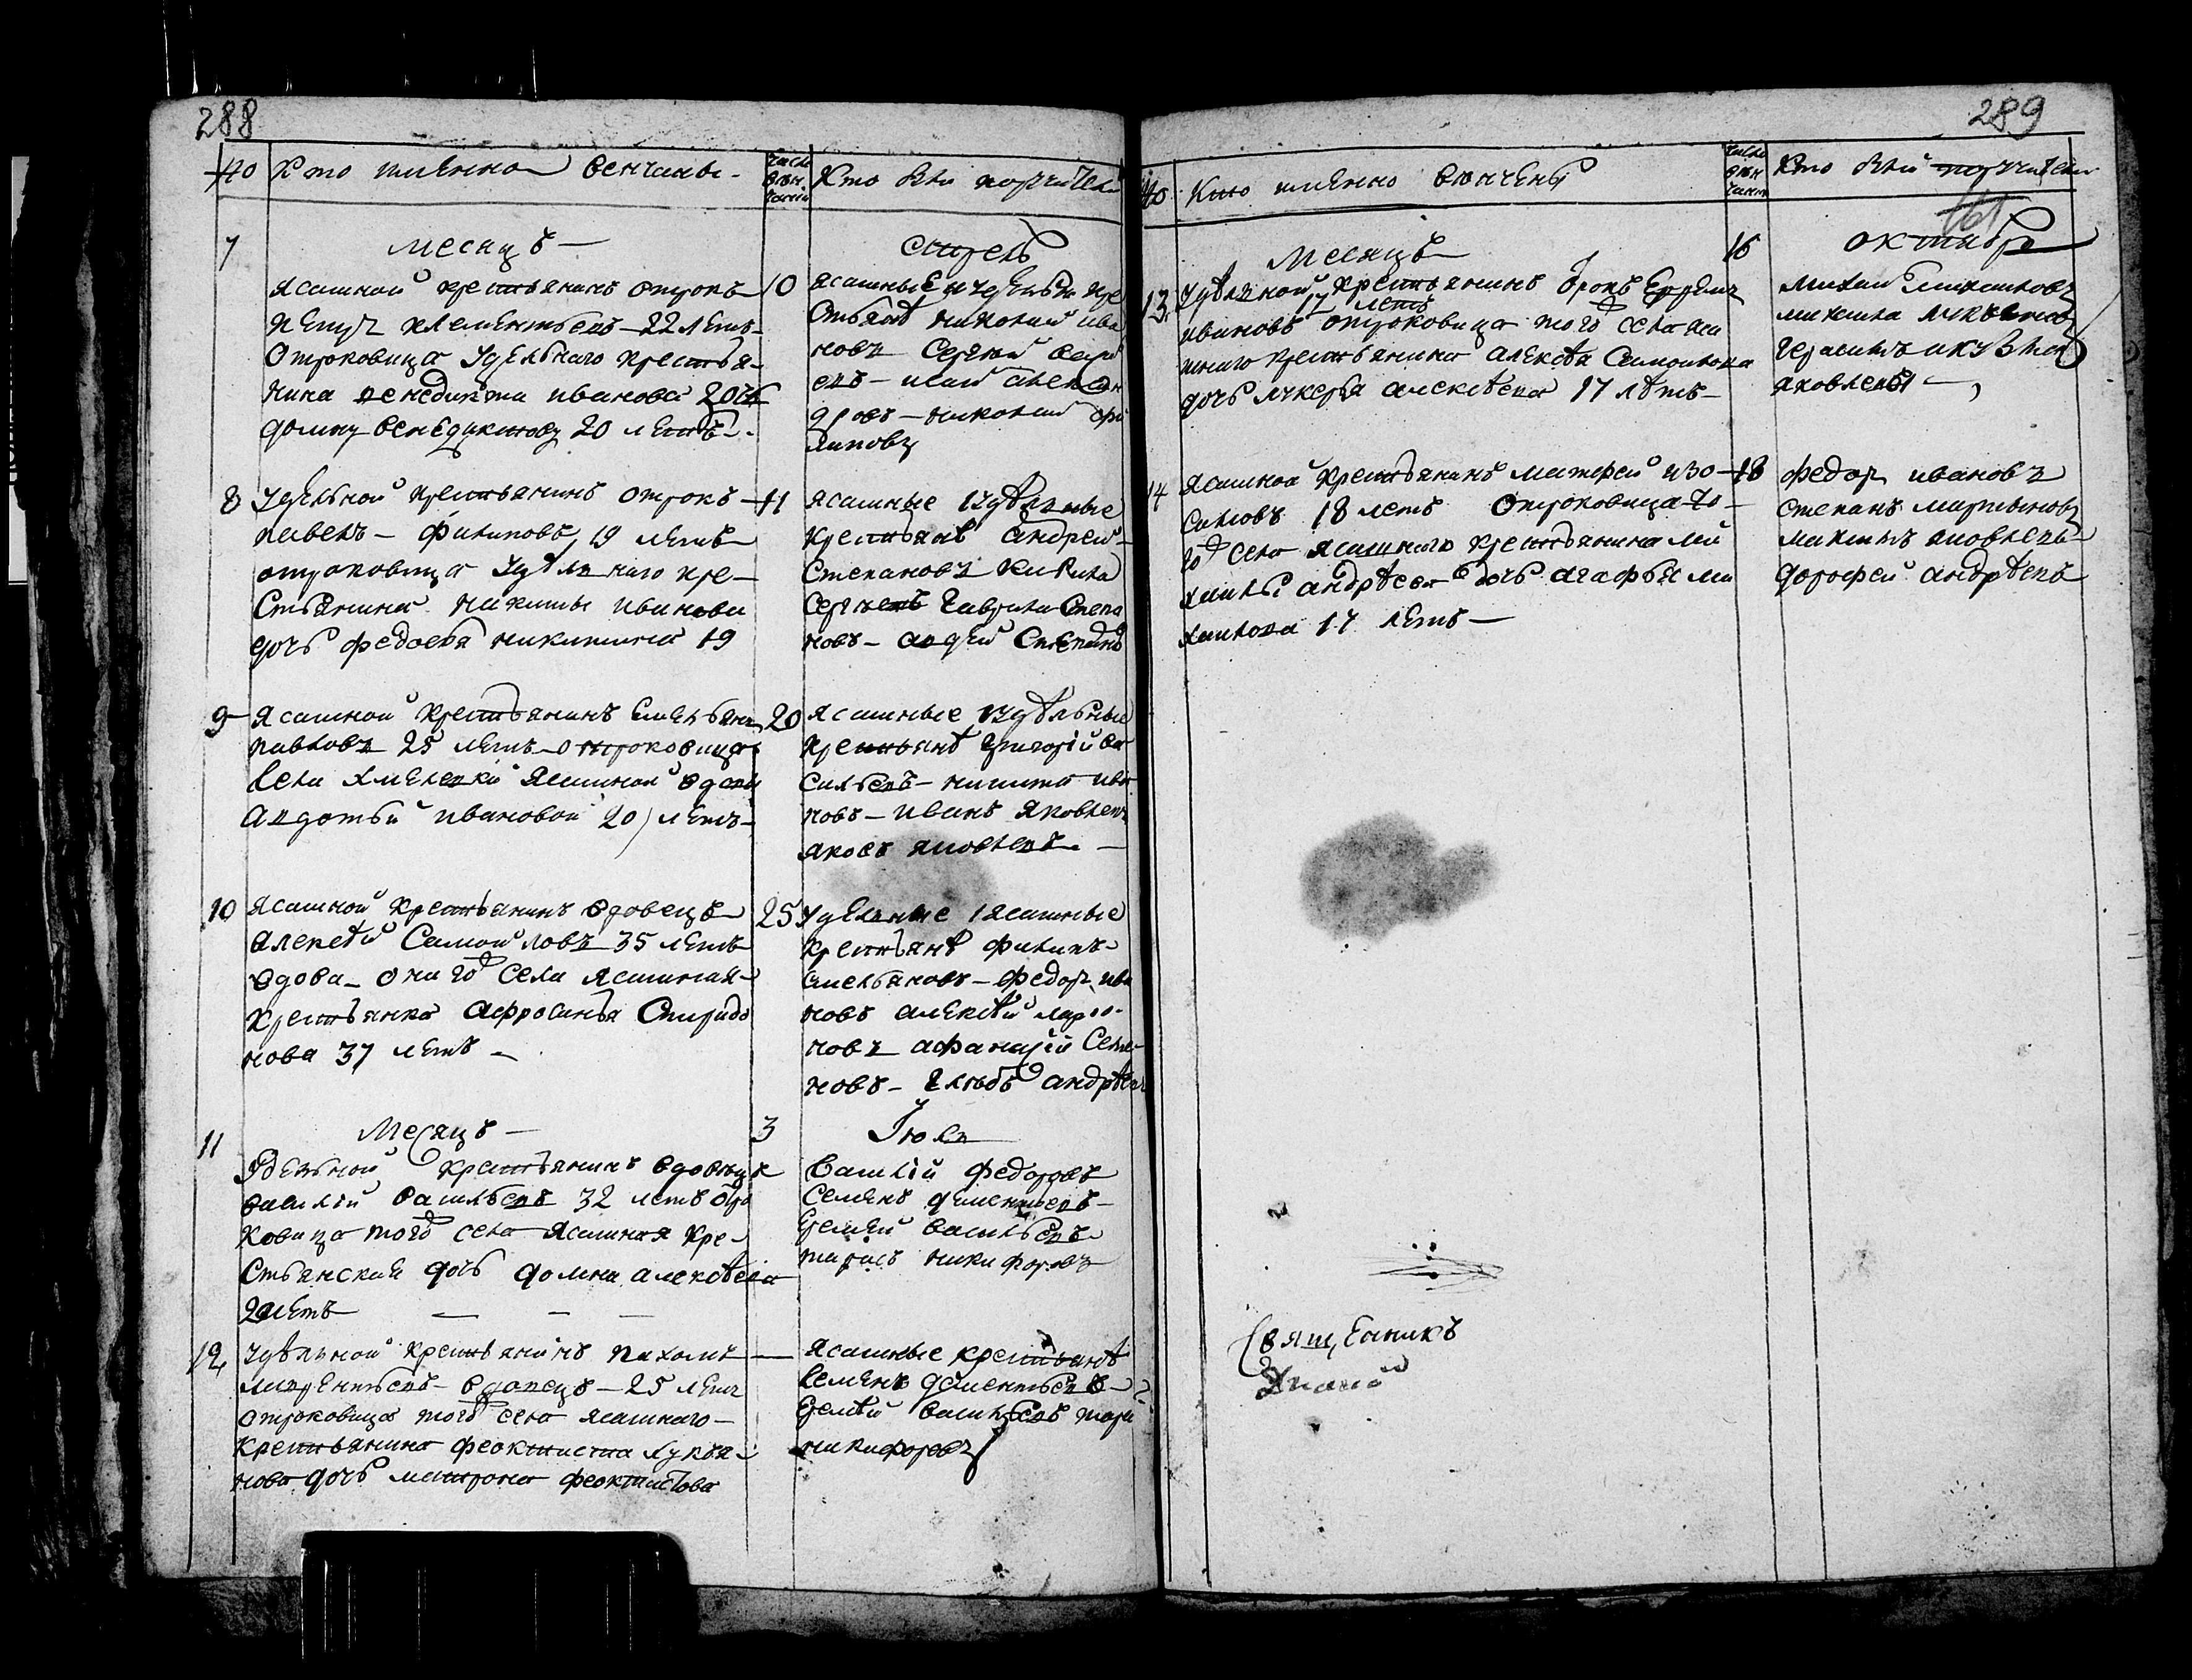 288
но Кто имянно венчаны
число вѣнчания
Кто были поручители
7 месяцъ
апрель
Ясашной крестьянинъ отрокъ 10
петръ клементьевъ 22 летъ
отроковица Удельнаго крестья-
нина венедикта иванова дочь
домну венедиктову 20 летъ
ясашные и удельные кре
стьянѣ николай ива
новъ Сергей
евъ исай алексан
дровъ николай фи
липовъ
8 Удельной крестьянинъ отрокъ 11
павелъ филиповъ 19 летъ
отроковица Удѣльнаго кре-
стьянина никиты иванова
дочь федосья никитина 19
ясашные и удѣльные
крестьянѣ андрей
Степановъ Кирила
Сергиевъ гаврила Степа
новъ авдей Степано
9 Ясашной крестьянинъ емельянъ 20
павловъ 25 летъ отроковица
села хмелевки ясашной вдовы
авдотьи ивановой 20 летъ
ясашные и удѣльные
крестьянѣ григорій ва
сильевъ никита ива
новъ иванъ яковлевъ
яковъ яковлевъ
10 Ясашной крестьянинъ вдовецъ 25
алексѣй Самойловъ 35 летъ
вдова онаго села ясашная
крестьянка афросинья Спиридо
нова 37 летъ
удельные и ясашные
крестьянѣ филипъ
емельяновъ федоръ ива
новъ алексѣй ларио-
новъ афанасій Семе-
новъ глебъ андрѣевъ
11 Месяцъ 3
Іюль
Удельной крестьянинъ вдовецъ
василій васильевъ 32 летъ отро
ковица того села Ясашная кре-
стьянская дочь домна алексѣева
20 летъ
василій федоровъ
Семенъ дементьевъ
Еремей васильевъ
тарасъ никифоровъ
12 Удѣльной крестьянинъ пахомъ
лаврентьевъ вдовецъ 25 летъ
отроковица того села ясашнаго
крестьянина феоктиста лукья-
нова дочь матрона феоктистова
Ясашные крестьянѣ
Семенъ дементьевъ
Еремѣй васильевъ тарас
никифоровъ
289
но Кто имянно вѣнчены
число вѣнчания
Кто были поручители
161
Месяцъ 16
октябрь
13 Удѣлной крестьянинъ отрокъ Ефремъ
17 летъ
ивановъ отроковица того села яса
шнаго крестьянина алексѣя Самойлова
дочь лукерья алексѣева 17 лѣтъ
михаил михаиловъ
михаила лукьяновъ
герасимъ и кузьма
яковлевы
14 Ясашной крестьянинъ матфей изо- 18
симовъ 18 летъ отроковица то-
го села ясашнаго крестьянина ми
хаилы андрѣева дочь агафья ми
хаилова 17 летъ
федоръ ивановъ
степанъ мартыновъ
максимъ яковлевъ
дорофей андрѣевъ
Священникъ